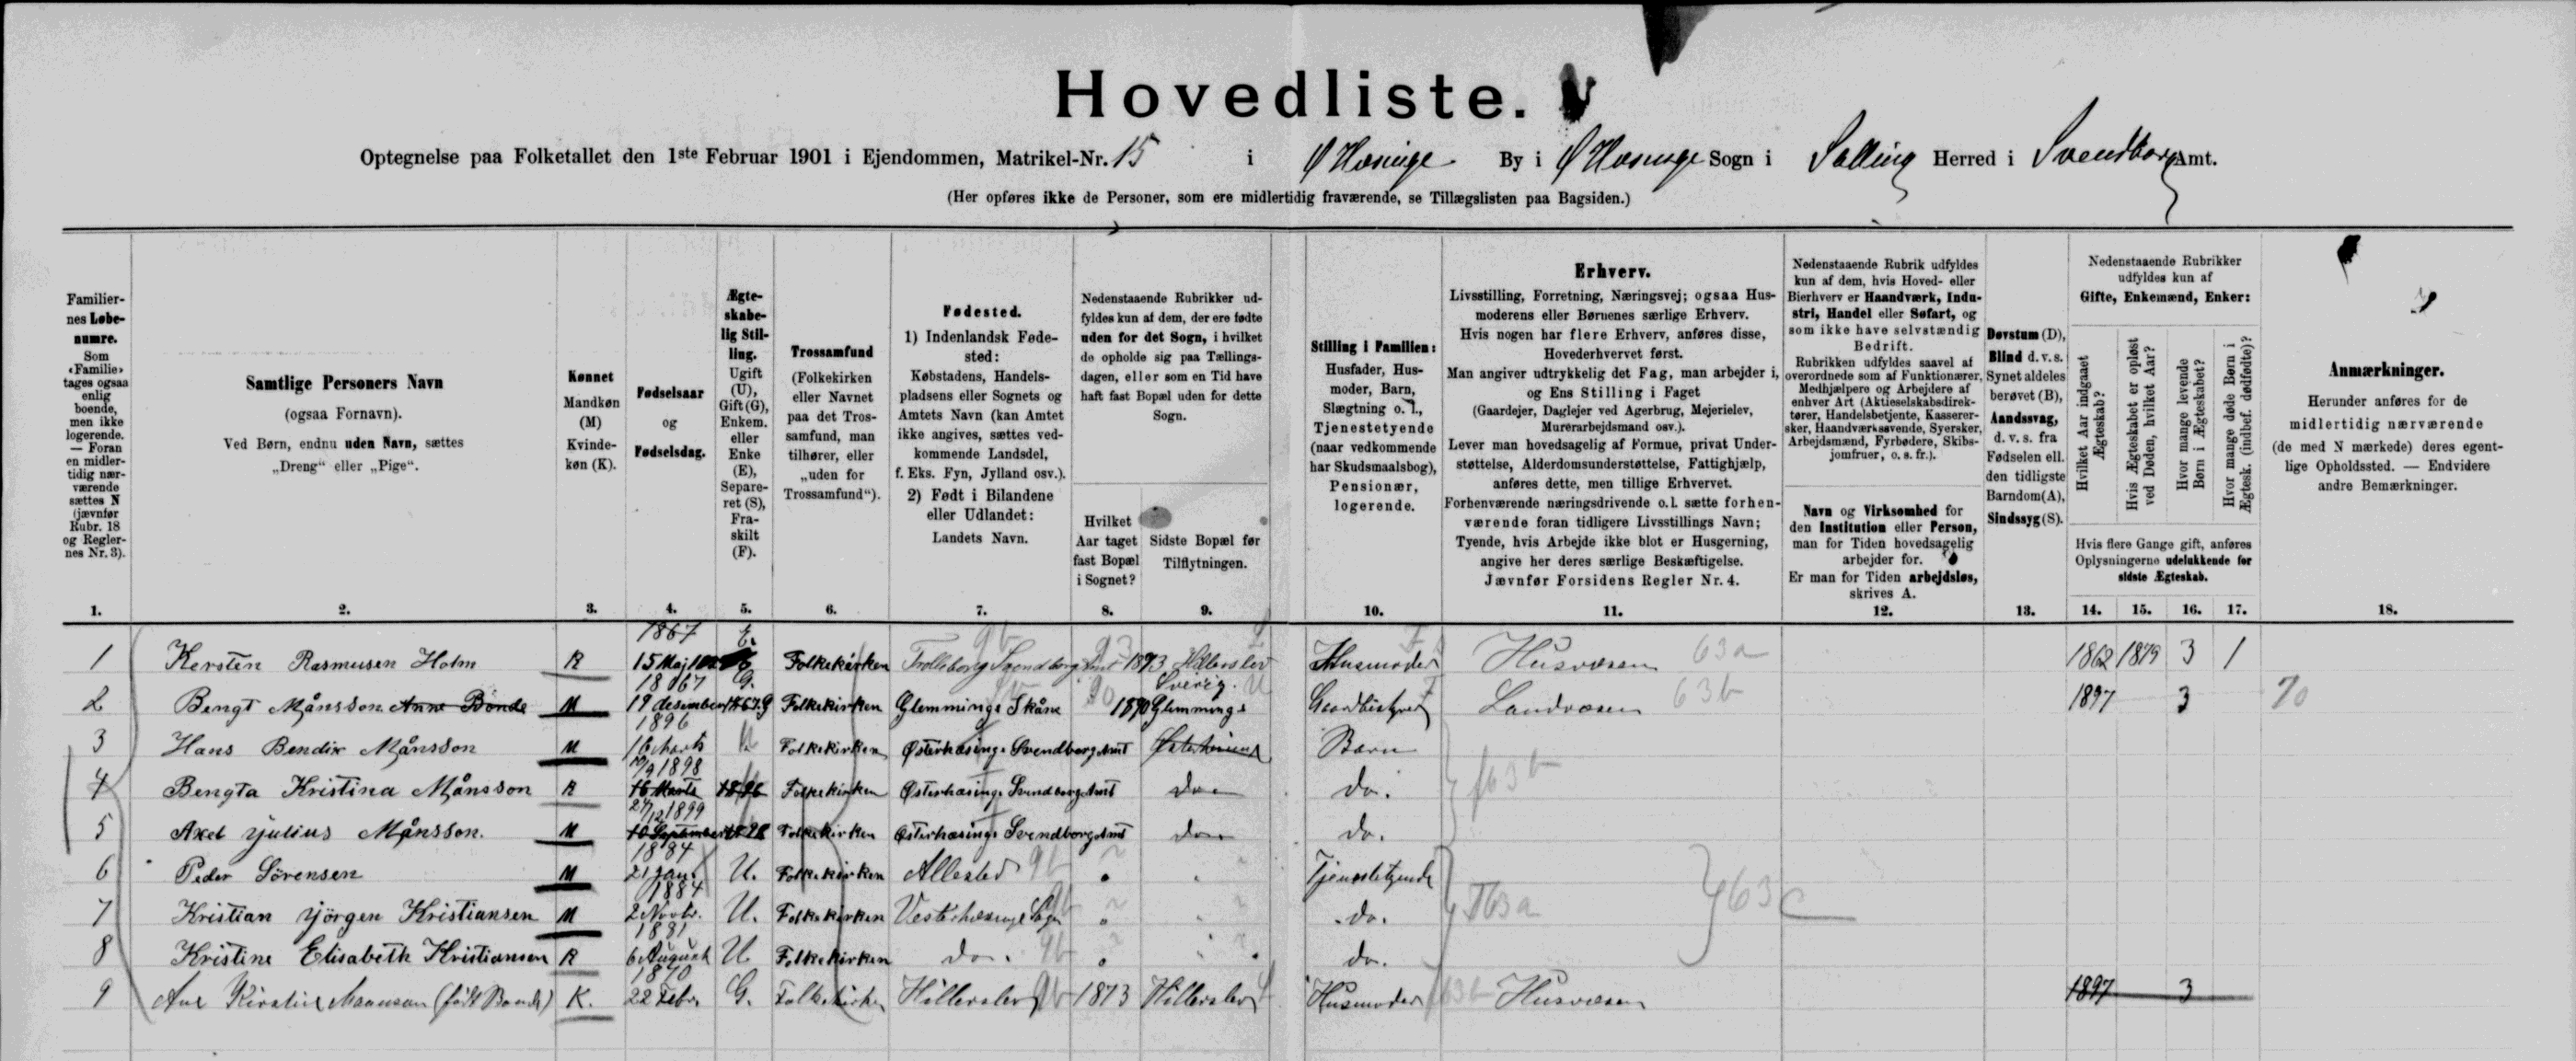 Hovedliste.
Optegnelse paa Folketallet den 1ste Februar 1901 i Ejendommen, Matrikel-Nr. 15 i Ø Hæsinge By i Ø Hæsinge Sogn i Salling Herred i Svendborg Amt.
(Her opføres ikke de Personer, som ere midlertidig fraværende, se Tillægslisten paa Bagsiden.)
Familier-
nes Løbe-
numre.
Som
«Familie»
tages ogsaa
enlig
boende,
men ikke
logerende.
— Foran
en midler-
tidig nær-
værende
sættes N
(jævnfør
Rubr. 18
og Regler-
nes Nr. 3).
1.
Samtlige Personers Navn
(ogsaa Fornavn).
Ved Børn, endnu uden Navn, sættes
„Dreng“ eller „Pige“.
2.
Kønnet
Mandkøn
(M)
Kvinde-
køn (K).
3.
Fødselsaar
og
Fødselsdag.
4.
Ægte-
skabe-
lig Stil-
ling.
Ugift
(U),
Gift (G),
Enkem.
eller
Enke
(E),
Separe-
ret (S),
Fra-
skilt
(F).
5.
Trossamfund
(Folkekirken
eller Navnet
paa det Tros-
samfund, man
tilhører, eller
„uden for
Trossamfund“).
6.
Fødested.
1) Indenlandsk Føde-
sted:
Købstadens, Handels-
pladsens eller Sognets og
Amtets Navn (kan Amtet
ikke angives, sættes ved-
kommende Landsdel,
f. Eks. Fyn, Jylland osv.).
2) Født i Bilandene
eller Udlandet:
Landets Navn.
7.
Nedenstaaende Rubrikker ud-
fyldes kun af dem, der ere fødte
uden for det Sogn, i hvilket
de opholde sig paa Tællings-
dagen, eller som en Tid have
haft fast Bopæl uden for dette
Sogn.
Hvilket
Aar taget
fast Bopæl
i Sognet?
8.
Sidste Bopæl før
Tilflytningen.
9.
Stilling i Familien:
Husfader, Hus-
moder, Barn,
Slægtning o. l.,
Tjenestetyende
(naar vedkommende
har Skudsmaalsbog),
Pensionær,
logerende.
10.
Erhverv.
Livsstilling, Forretning, Næringsvej; ogsaa Hus-
moderens eller Børnenes særlige Erhverv.
Hvis nogen har flere Erhverv, anføres disse,
Hovederhvervet først.
Man angiver udtrykkelig det Fag, man arbejder i,
og Ens Stilling i Faget
(Gaardejer, Daglejer ved Agerbrug, Mejerielev,
Murerarbejdsmand osv.).
Lever man hovedsagelig af Formue, privat Under-
støttelse, Alderdomsunderstøttelse, Fattighjælp,
anføres dette, men tillige Erhvervet.
Forhenværende næringsdrivende o. l. sætte forhen-
værende foran tidligere Livsstillings Navn;
Tyende, hvis Arbejde ikke blot er Husgerning,
angive her deres særlige Beskæftigelse.
Jævnfør Forsidens Regler Nr. 4.
11.
Nedenstaaende Rubrik udfyldes
kun af dem, hvis Hoved- eller
Bierhverv er Haandværk, Indu-
stri, Handel eller Søfart, og
som ikke have selvstændig
Bedrift.
Rubrikken udfyldes saavel af
overordnede som af Funktionærer,
Medhjælpere og Arbejdere af
enhver Art (Aktieselskabsdirek-
tører, Handelsbetjente, Kasserer-
sker, Haandværkssvende, Syersker,
Arbejdsmænd, Fyrbødere, Skibs-
jomfruer, o. s. fr.).
Navn og Virksomhed for
den Institution eller Person,
man for Tiden hovedsagelig
arbejder for.
Er man for Tiden arbejdsløs,
skrives A.
12.
Døvstum (D),
Blind d. v. s.
Synet aldeles
berøvet (B),
Aandssvag,
d. v. s. fra
Fødselen ell.
den tidligste
Barndom (A),
Sindssyg (S).
13.
Nedenstaaende Rubrikker
udfyldes kun af
Gifte, Enkemænd, Enker:
Hvilket Aar indgaaet
Ægteskab?
Hvis Ægteskabet er opløst
ved Døden, hvilket Aar?
Hvor mange levende
Børn i Ægteskabet?
Hvor mange døde Børn i
Ægtesk. (indbef. dødfødte)?
Hvis flere Gange gift, anføres
Oplysningerne udelukkende for
sidste Ægteskab.
14. 15. 16. 17.
Anmærkninger.
Herunder anføres for de
midlertidig nærværende
(de med N mærkede) deres egent-
lige Opholdssted. — Endvidere
andre Bemærkninger.
18.
1 Kersten Rasmusen Holm K 15 Maj E. Folkekirken Trolleborg Svendborg Amt 1873 Hillerslev Husmoder Husvæsen 63a 1862 1879 3 1
2 Bengt Månsson Anne Bonde M 19 desember 1867 G Folkekirken Glemminge Skåne 1890 Glemminge Sverig. Gaardbestyrer Landvæsen 63b 1897 3 70
3 Hans Bendix Månsson M 1896 16 Marts U Folkekirken Østerhæsinge Svendborg Amt Barn
4 Bengta Kristina Månsson K 1898 16 Marts 1896 Folkekirken Østerhæsinge Svendborg Amt do do. 63b
5 Axel Julius Månsson. M 27/12 1899 Folkekirken Østerhæsinge Svendborg Amt do do.
6 Peder Sörensen M 1884 21 Jan. U. Folkekirken Allested 9b Tjenestetyende
7 Kristian Jörgen Kristiansen M 1884 2 Novbr. U. Folkekirken Vesterhæsinge Sogn do. 63a 63c
8 Kristine Elisabeth Kristiansen K 1881 6 August U Folkekirken do. 9b do.
9 Ane Kirstine Maanson (født Bonde) K. 1870 22 Febr. G. Folkekirken Hillerslev 9b 1873 Hillerslev Husmoder 63b Husvæsen 1897 3